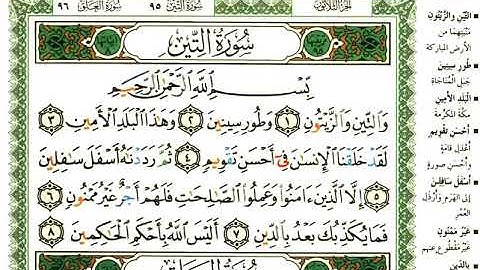 سُورَةُ العَلَق ٩٦
سُورَةُ التِّين ٩٥
الجُزْءُ الثَّلَاثُونَ
سُورَةُ التِّينِ
بِسْمِ اللَّهِ الرَّحْمَٰنِ الرَّحِيمِ
وَالتِّينِ وَالزَّيْتُونِ ١ وَطُورِ سِينِينَ ٢ وَهَٰذَا الْبَلَدِ الْأَمِينِ ٣
لَقَدْ خَلَقْنَا الْإِنسَانَ فِي أَحْسَنِ تَقْوِيمٍ ٤ ثُمَّ رَدَدْنَاهُ أَسْفَلَ سَافِلِينَ
٥ إِلَّا الَّذِينَ ءَامَنُوا وَعَمِلُوا الصَّالِحَاتِ فَلَهُمْ أَجْرٌ غَيْرُ مَمْنُونٍ ٦
فَمَا يُكَذِّبُكَ بَعْدُ بِالدِّينِ ٧ أَلَيْسَ اللَّهُ بِأَحْكَمِ الْحَاكِمِينَ ٨
سُورَةُ العَلَقِ
التِّينِ والزَّيْتُونِ
مَنْبَتَيْهِما مِن
الأرضِ المباركة
طُورِ سِينِينَ
جَبَلِ المُنَاجَاةِ
البَلَدِ الأمِينِ
مكَّةَ المكرَّمةِ
أَحْسَنِ تَقْوِيمٍ
أَعْدَلِ قامَةٍ
وأحسَنِ صورةٍ
أَسْفَلَ سَافِلِينَ
إلى الهَرَمِ وأرْذَلِ
العُمُرِ
غَيْرُ مَمْنُونٍ
غيرُ مَقْطُوعٍ عنهم
بِالدِّينِ